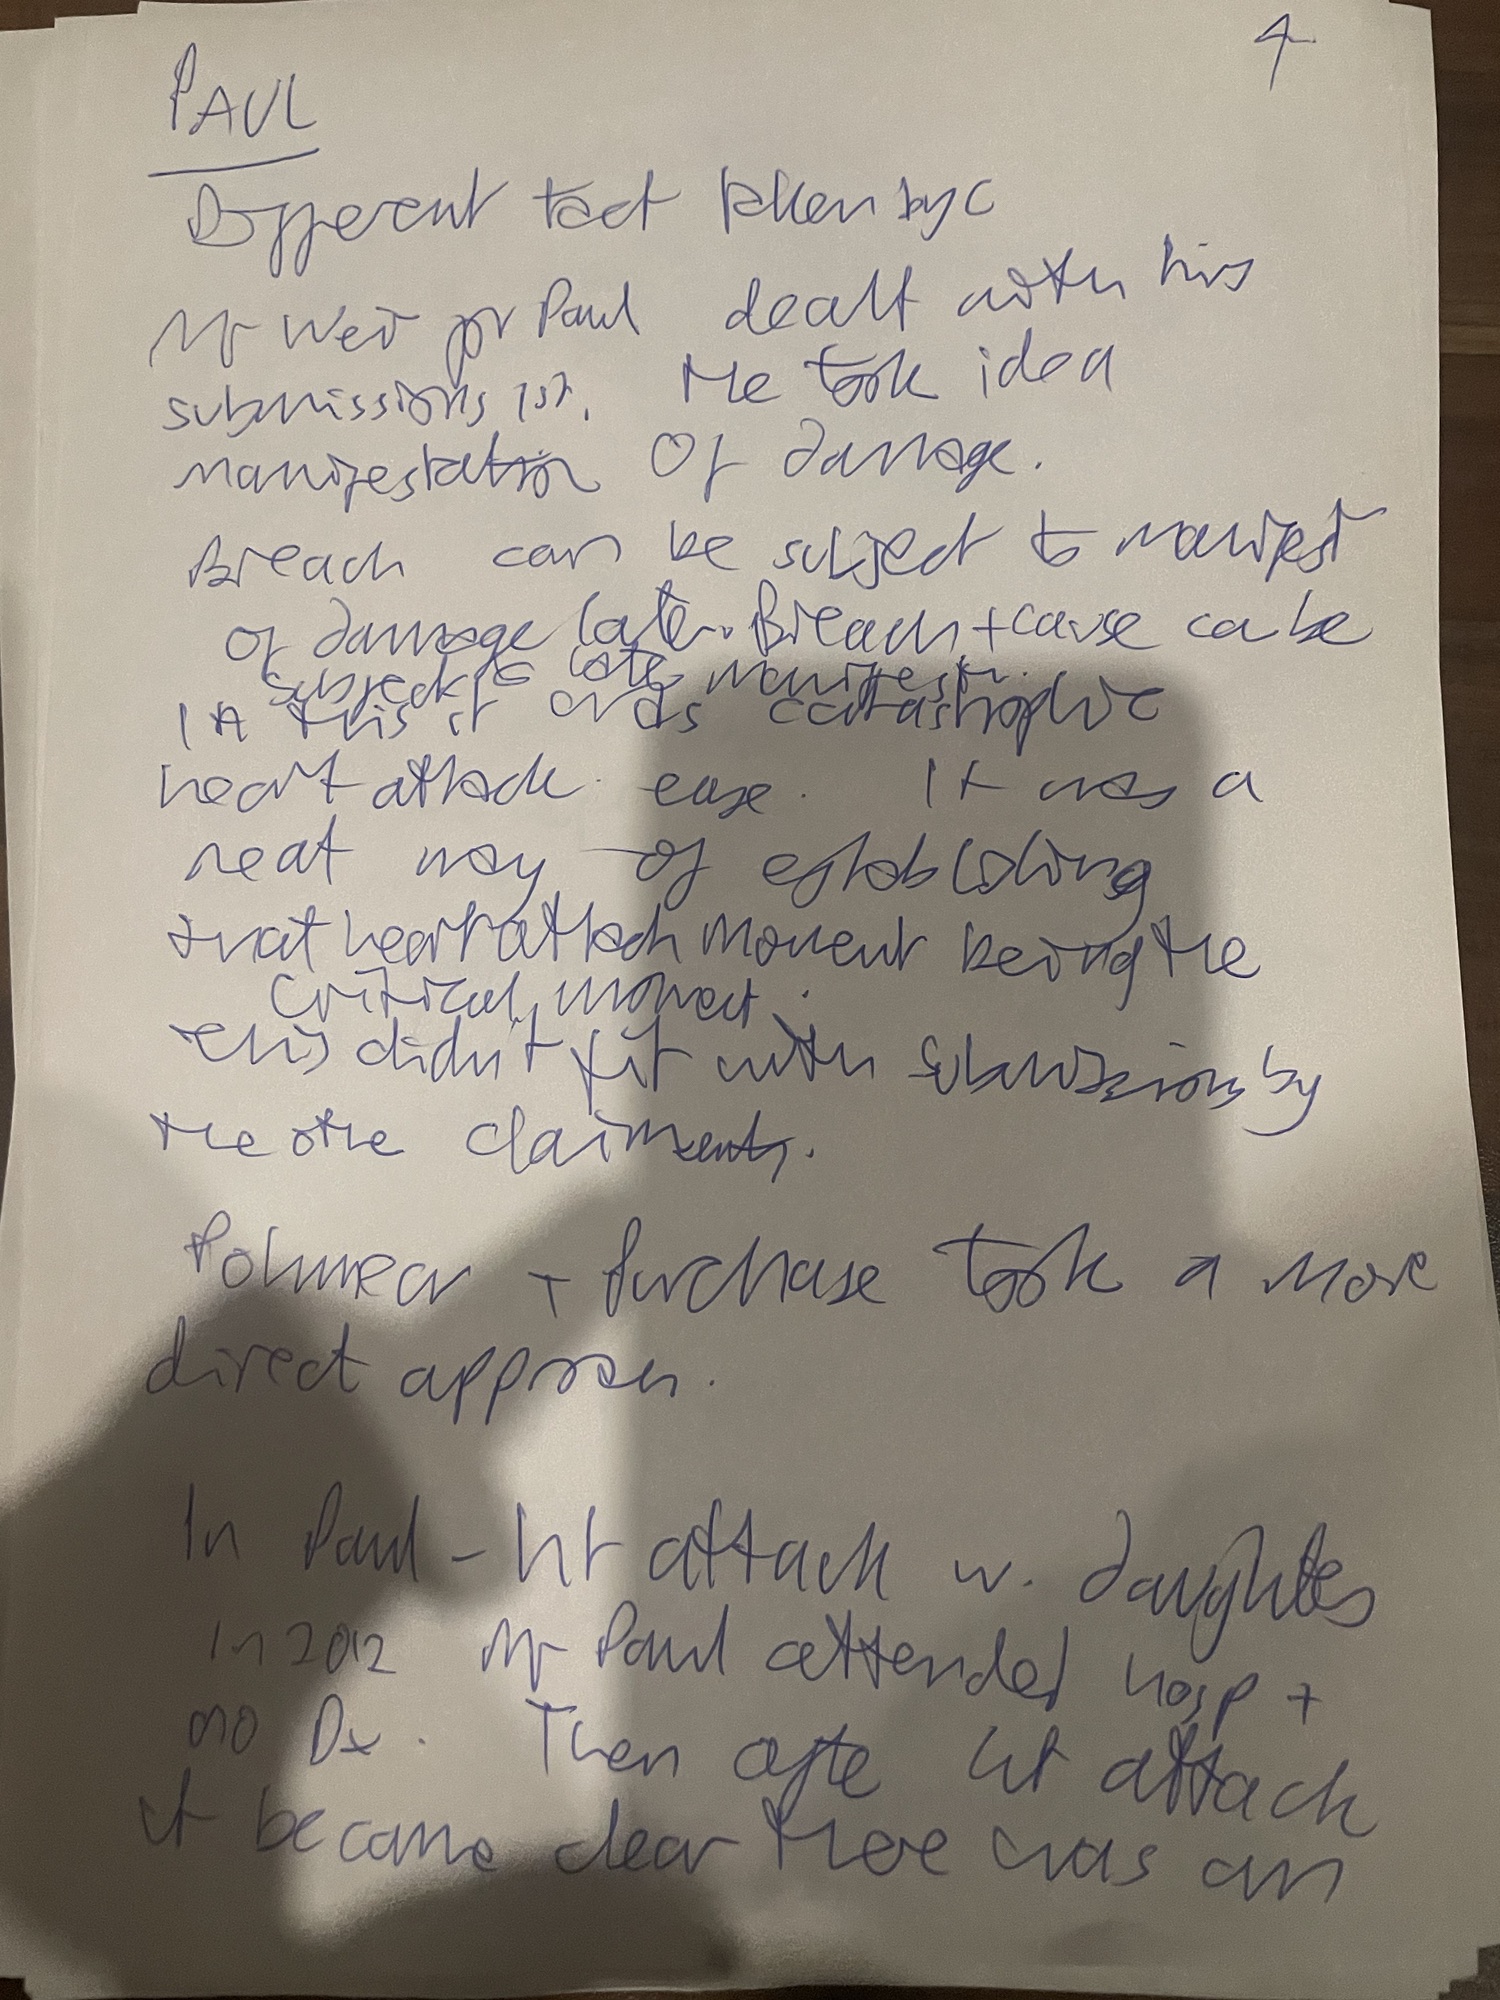 4
PAUL
Different tact taken by C
Mr Weir for Paul dealt with his
submissions 1st. He took idea
manifestation of damage.
Breach can be subject to manifest
of damage later. Breach + cause ca be
subject to late manifest.
In this it was catastrophic
heart attack case. It was a
neat way of establishing
that heart attack moment being the
critical moment.
This didn't fit with submissions by
the othe claimants.
Polmear + Purchase took a more
direct approach.
In Paul - ht attack w. daughters
In 2012 Mr Paul attended hosp +
no Dx. Then afte ht attack
it became clear there was an